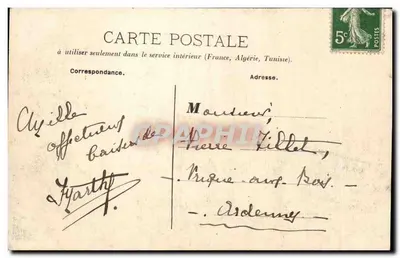 CARTE POSTALE
à utiliser seulement dans le service intérieur (France, Algérie, Tunisie).
Correspondance.
Adresse.
5c
POSTES
Mille
affectueux
baisers de
Marthe
Monsieur,
Pierre Tillet,
Ardennes